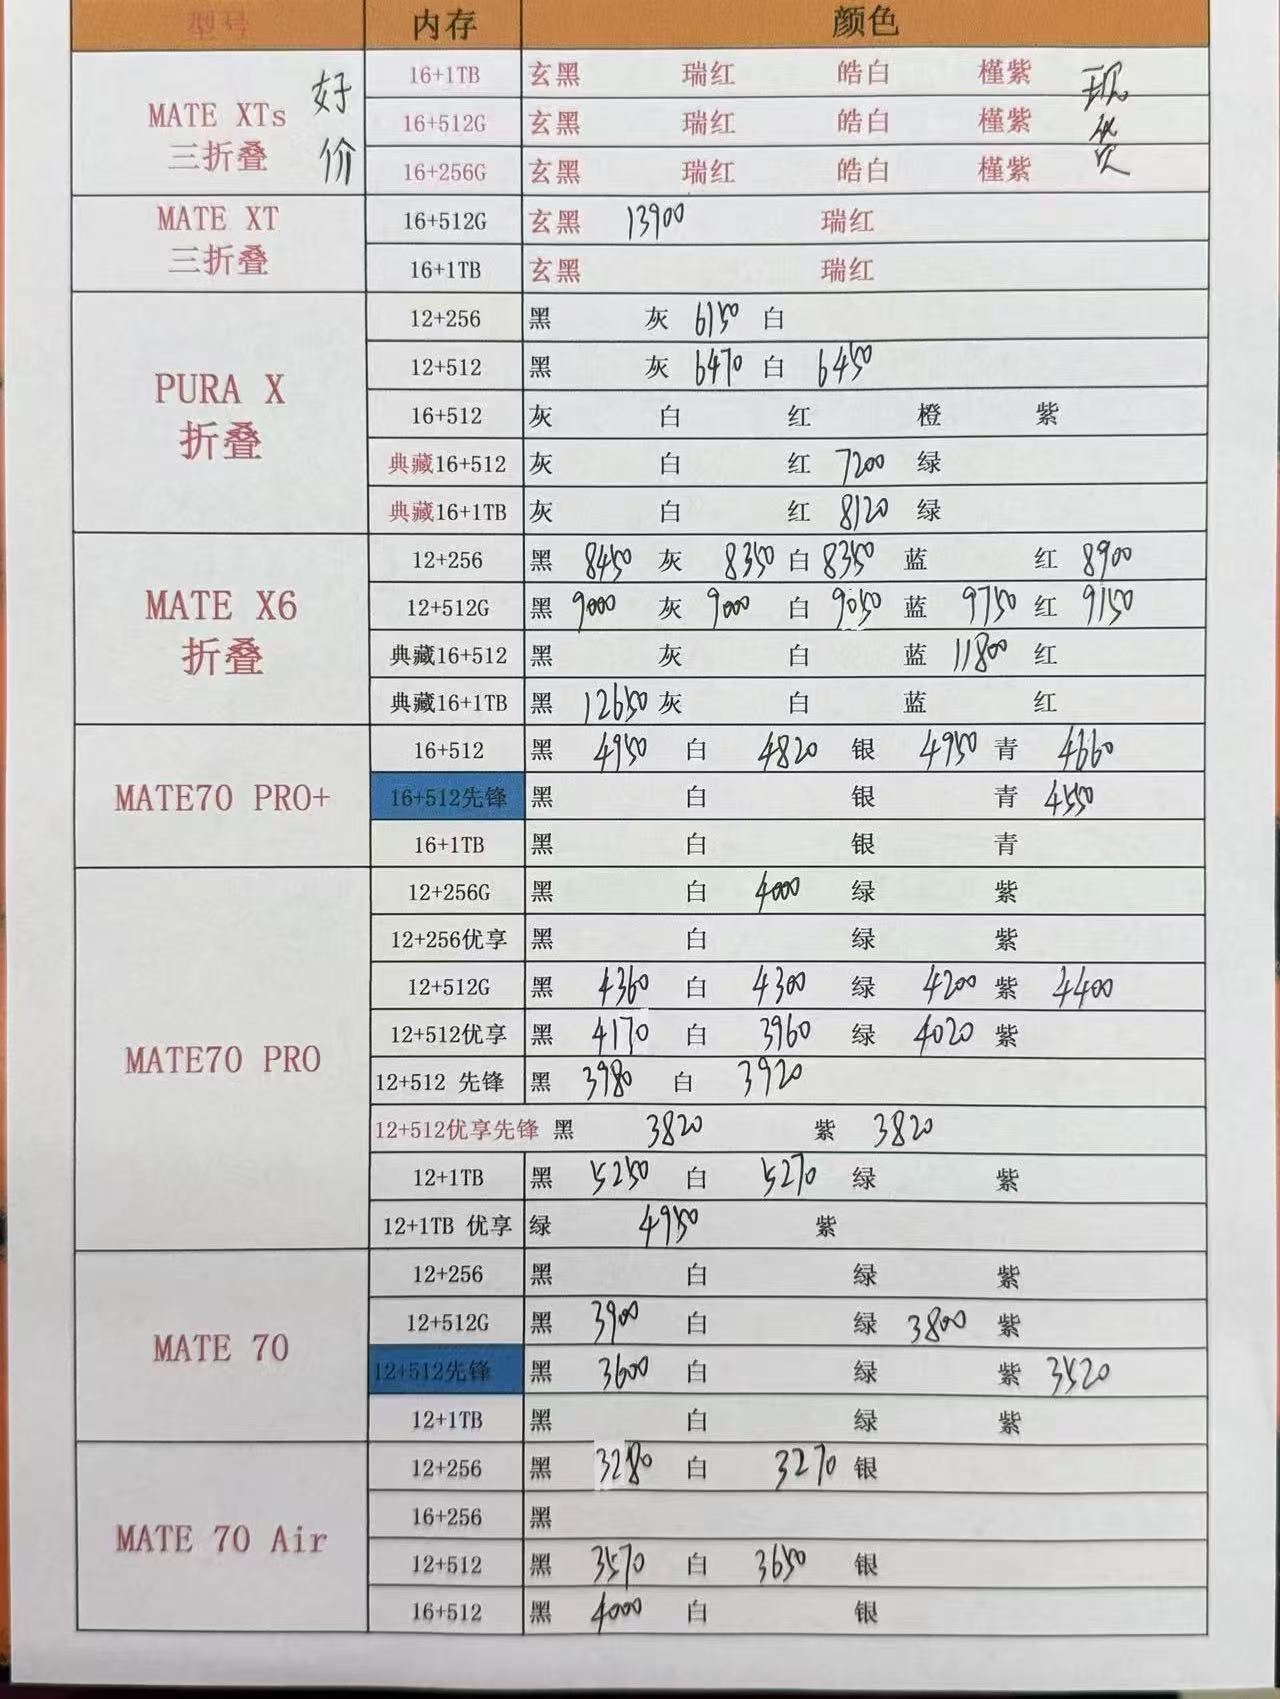 型号 内存 颜色
MATE XTs 三折叠 好价 现货
16+1TB 玄黑 瑞红 皓白 槿紫
16+512G 玄黑 瑞红 皓白 槿紫
16+256G 玄黑 瑞红 皓白 槿紫
MATE XT 三折叠
16+512G 玄黑 13900 瑞红
16+1TB 玄黑 瑞红
PURA X 折叠
12+256 黑 灰 6150 白
12+512 黑 灰 6470 白 6450
16+512 灰 白 红 橙 紫
典藏16+512 灰 白 红 7200 绿
典藏16+1TB 灰 白 红 8120 绿
MATE X6 折叠
12+256 黑 8450 灰 8350 白 8350 蓝 红 8900
12+512G 黑 9000 灰 9000 白 9050 蓝 9750 红 9150
典藏16+512 黑 灰 白 蓝 11800 红
典藏16+1TB 黑 12650 灰 白 蓝 红
MATE70 PRO+
16+512 黑 4950 白 4820 银 4950 青 4660
16+512先锋 黑 白 银 青 4550
16+1TB 黑 白 银 青
MATE70 PRO
12+256G 黑 白 4000 绿 紫
12+256优享 黑 白 绿 紫
12+512G 黑 4360 白 4300 绿 4200 紫 4400
12+512优享 黑 4170 白 3960 绿 4020 紫
12+512 先锋 黑 3980 白 3920
12+512优享先锋 黑 3820 紫 3820
12+1TB 黑 5250 白 5270 绿 紫
12+1TB 优享 绿 4950 紫
MATE 70
12+256 黑 白 绿 紫
12+512G 黑 3900 白 绿 3800 紫
12+512先锋 黑 3600 白 绿 紫 3520
12+1TB 黑 白 绿 紫
MATE 70 Air
12+256 黑 3280 白 3270 银
16+256 黑
12+512 黑 3570 白 3650 银
16+512 黑 4000 白 银